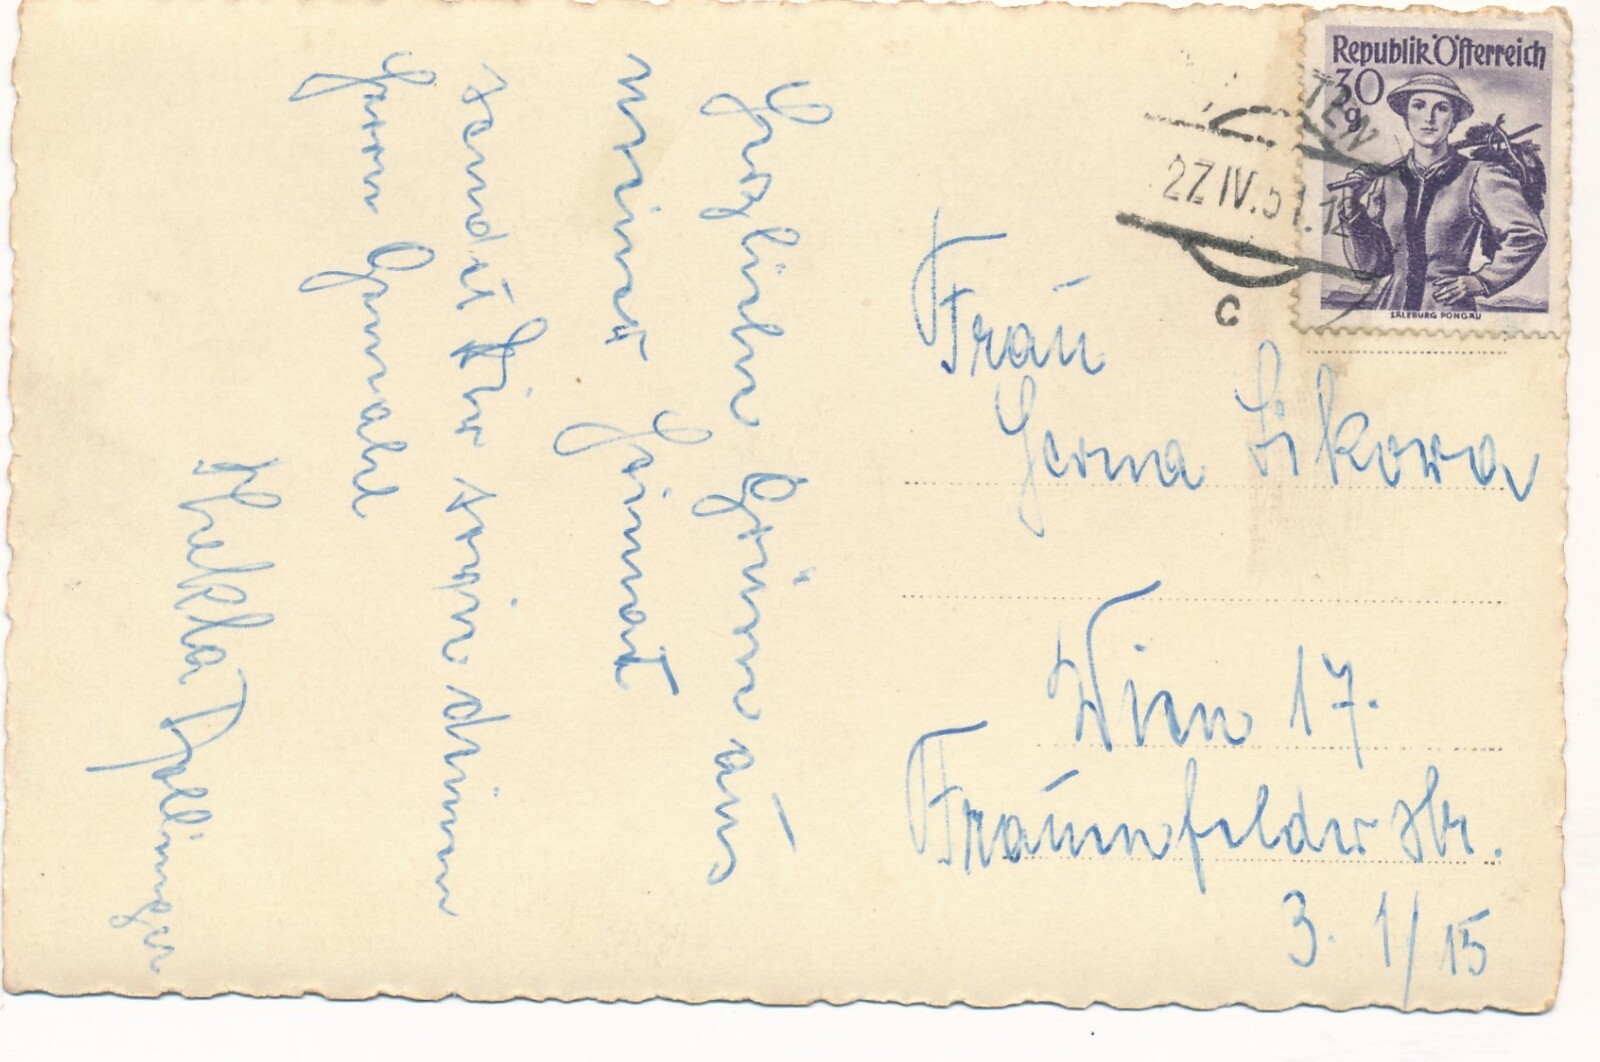 Herzliche Grüsse aus
meiner Heimat
sendet Dir sowie deinem
Herrn Gemahl
Thekla
Republik Österreich
30
g
SALZBURG PONGAU
27.IV.51.12
C
Frau
Herma Sikora
Wien 17.
Frauenfelderstr.
3. 1/15